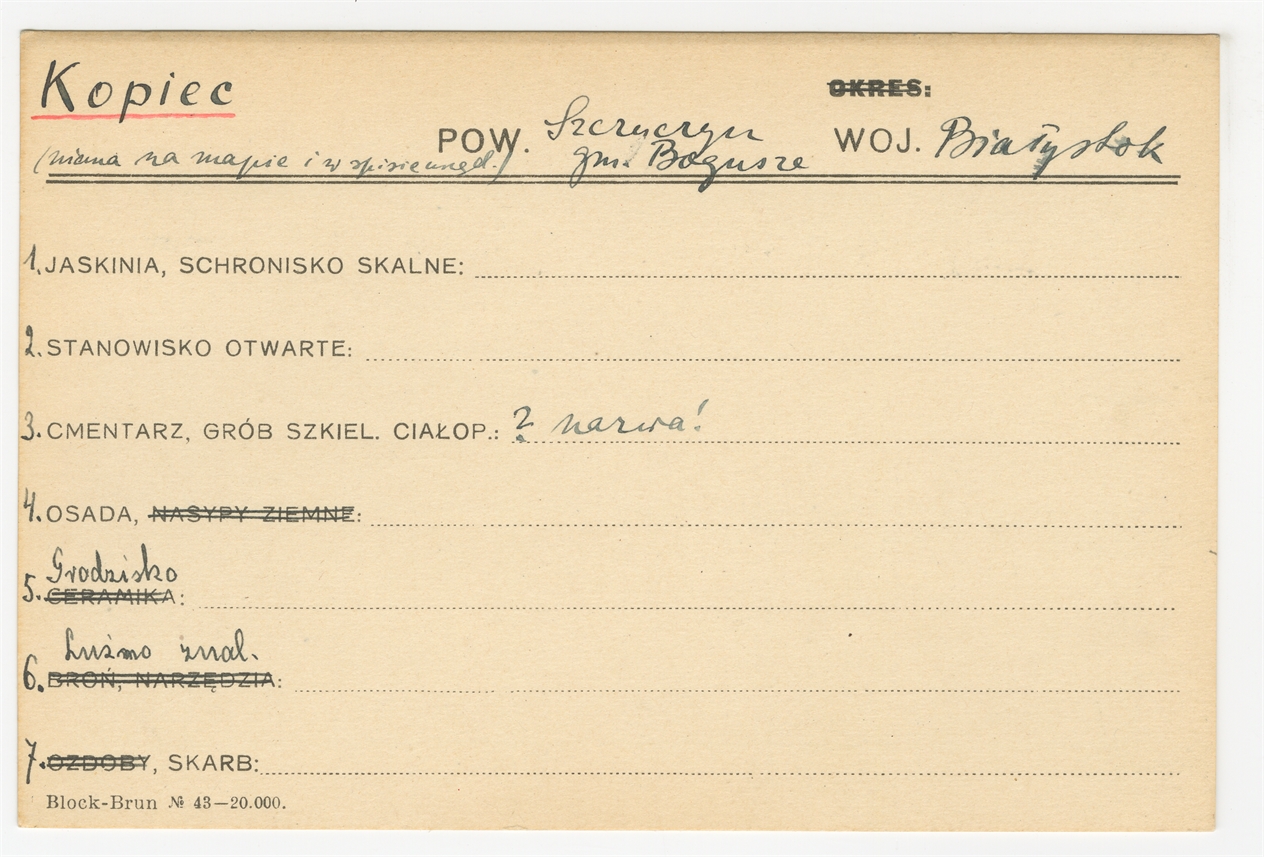 Kopiec
OKRES:
POW. Szczuczyn WOJ. Białystok
(niema na mapie i w spisie urzęd.) gm. Bogusze
1. JASKINIA, SCHRONISKO SKALNE:
2. STANOWISKO OTWARTE:
3. CMENTARZ, GRÓB SZKIEL. CIAŁOP.: ? nazwa!
4. OSADA, NASYPY ZIEMNE:
Grodzisko
5. CERAMIKA:
Luźno znal.
6. BROŃ, NARZĘDZIA:
7. OZDOBY, SKARB:
Block-Brun № 43—20.000.